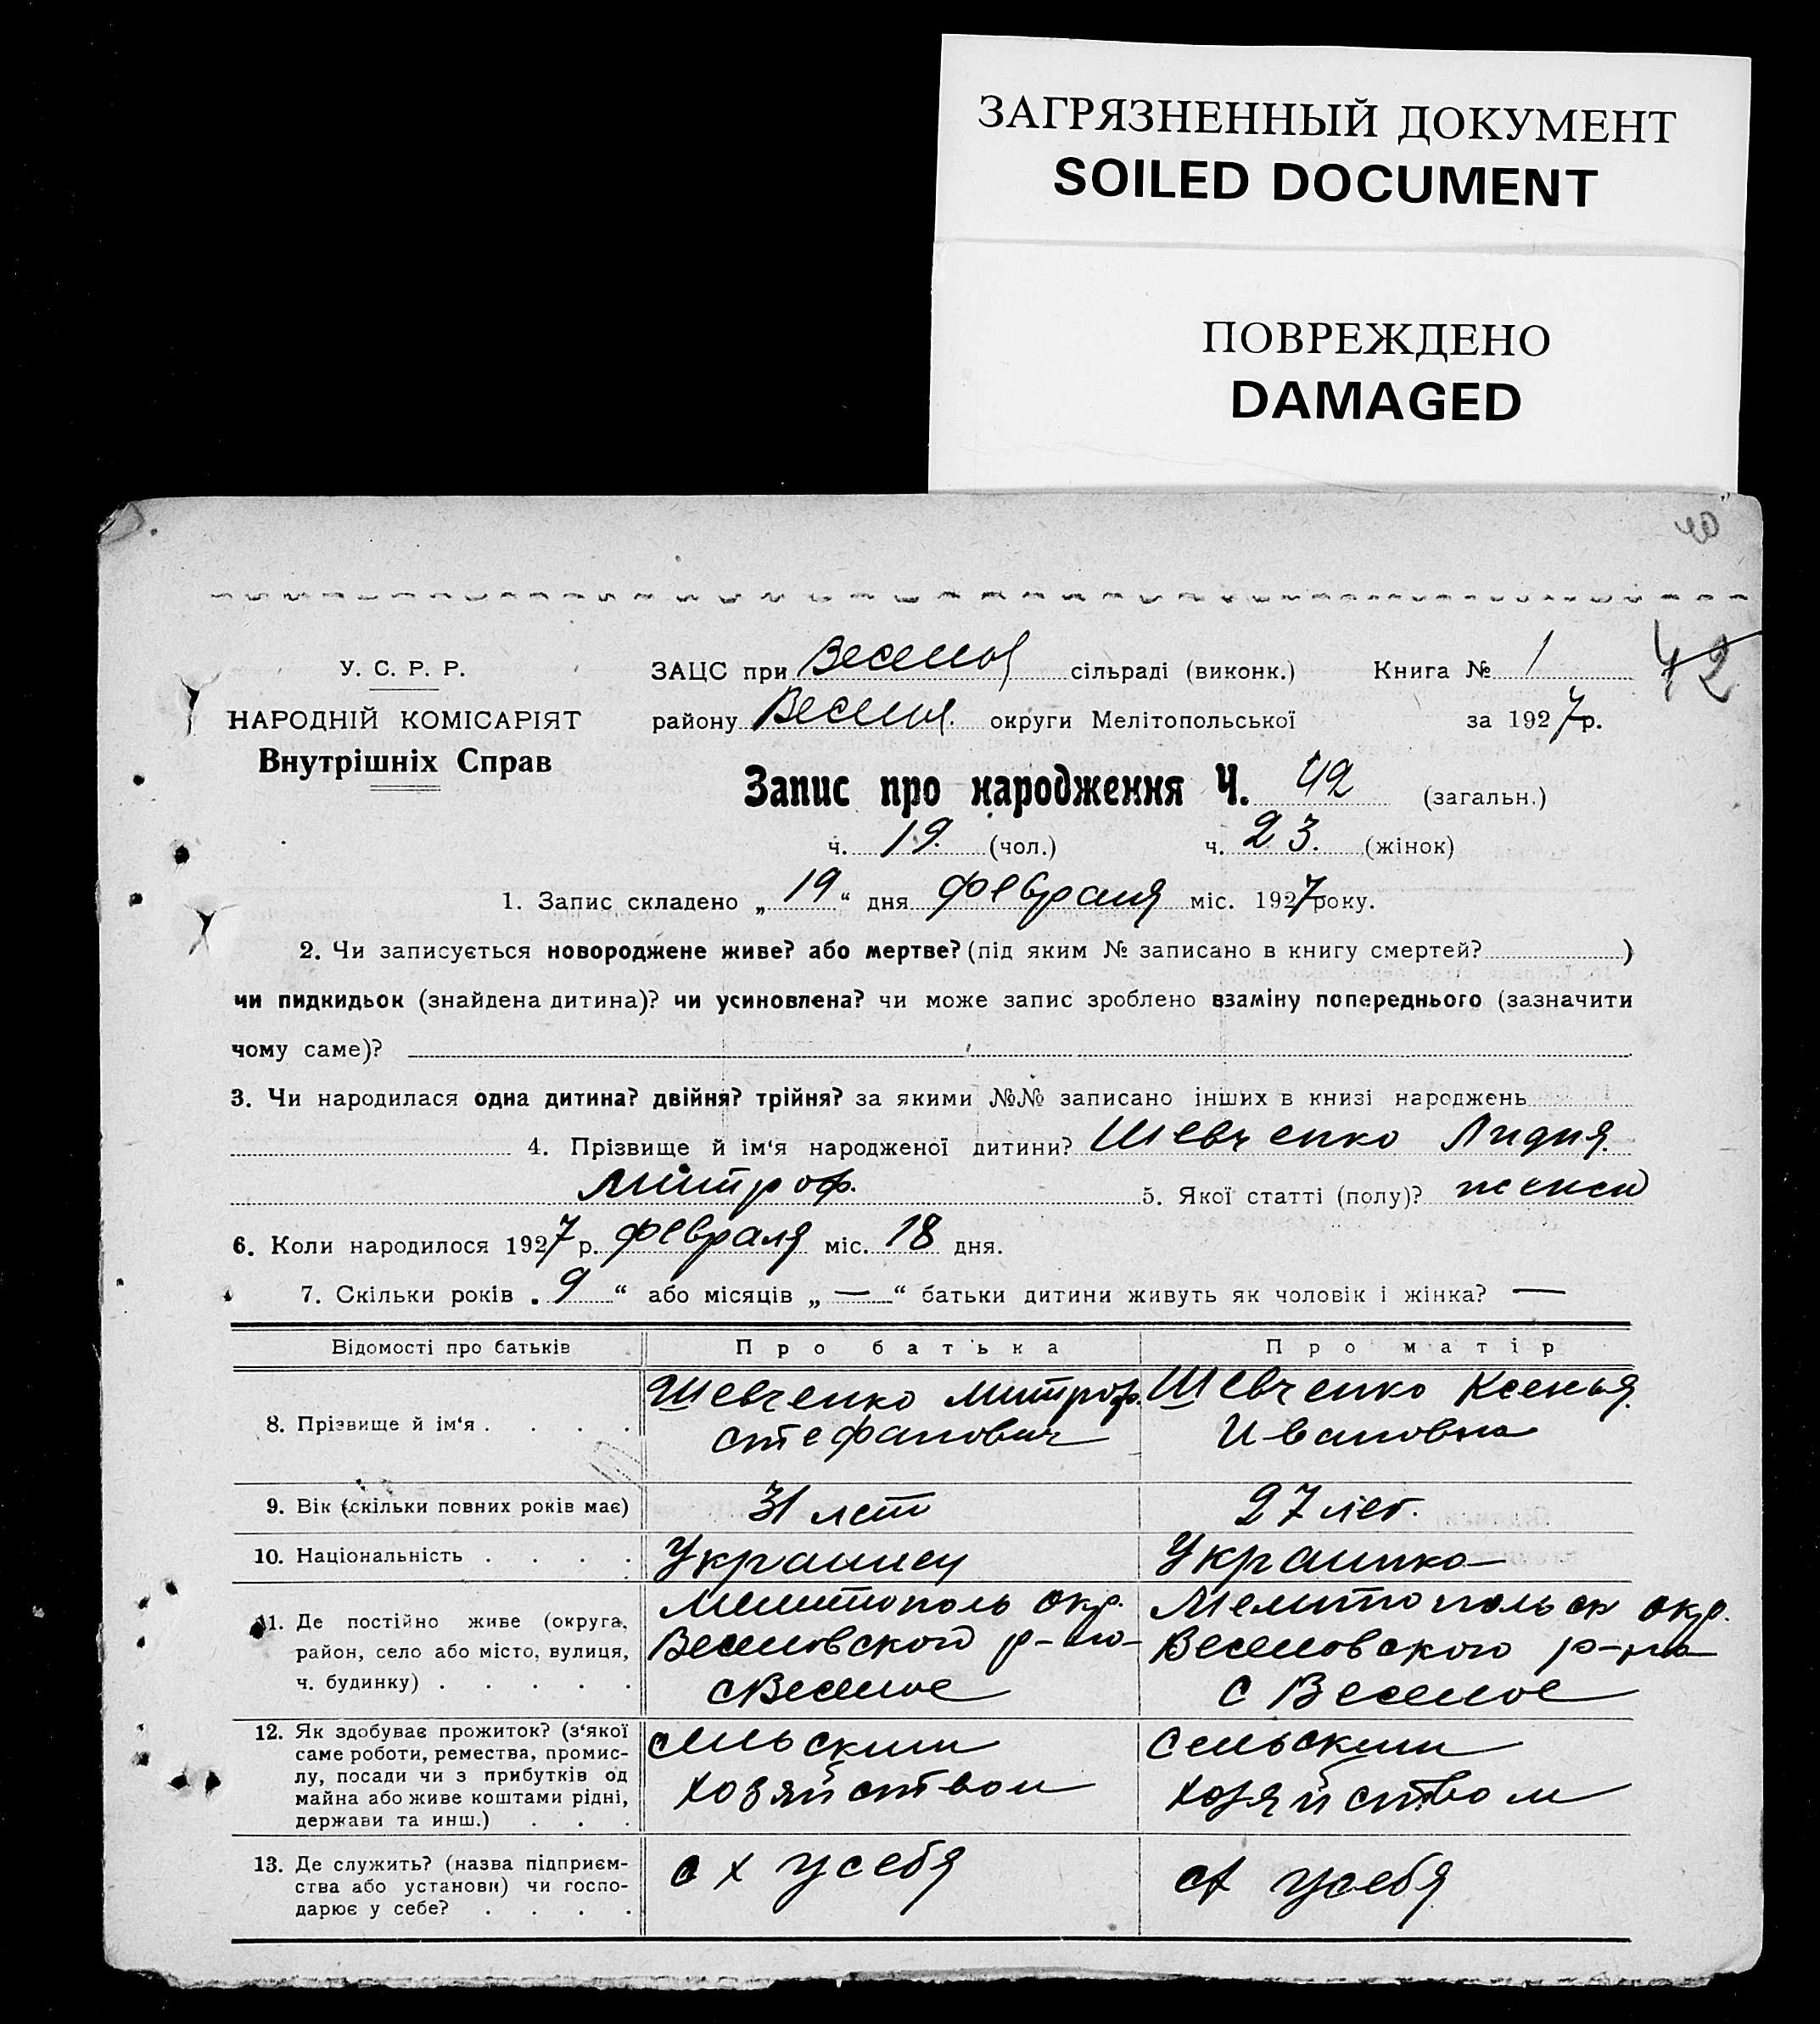 ЗАГРЯЗНЕННЫЙ ДОКУМЕНТ
SOILED DOCUMENT
ПОВРЕЖДЕНО
DAMAGED
42
У. С. Р. Р.
НАРОДНІЙ КОМІСАРІЯТ
Внутрішніх Справ
ЗАЦС при Веселов сільраді (виконк.) Книга № 1
району Весел. округи Мелітопольської за 1927 р.
Запис про народження Ч. 42 (загальн.)
ч. 19. (чол.) ч. 23. (жінок)
1. Запис складено „19“ дня февраля міс. 1927 року.
2. Чи записується новороджене живе? або мертве? (під яким № записано в книгу смертей? )
чи пидкидьок (знайдена дитина)? чи усиновлена? чи може запис зроблено взаміну попереднього (зазначити
чому саме)?
3. Чи народилася одна дитина? двійня? трійня? за якими №№ записано інших в книзі народжень
4. Прізвище й ім‘я народженої дитини? Шевченко Лидия
Митроф. 5. Якої статті (полу)? женск
6. Коли народилося 1927 р. февраля міс. 18 дня.
7. Скільки років „ 9 “ або місяців „ — “ батьки дитини живуть як чоловік і жінка? —
Відомості про батьків Про батька Про матір
8. Прізвище й ім‘я . . . .
Шевченко Митроф.
Стефанович
Шевченко Ксенья
Ивановна
9. Вік (скільки повних років має) 31 лет 27 лет.
10. Національність . . . . Украинец Украинка
11. Де постійно живе (округа,
район, село або місто, вулиця,
ч. будинку) . . . . .
Мелитополь окр.
Веселовского р-на
с Веселое
Мелитопольск окр.
Веселовского р-на
с Веселое
12. Як здобуває прожиток? (з‘якої
саме роботи, ремества, промис-
лу, посади чи з прибутків од
майна або живе коштами рідні,
держави та инш.) . . .
сельским
хозяйством
сельским
хозяйством
13. Де служить? (назва підприєм-
ства або установи) чи госпо-
дарює у себе? . . . .
с х у себя
сх у себя